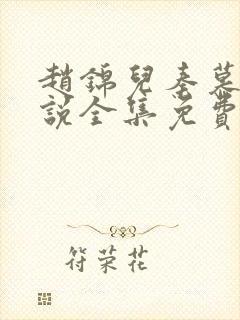 趙錦兒秦慕
說全集免費
符荣花